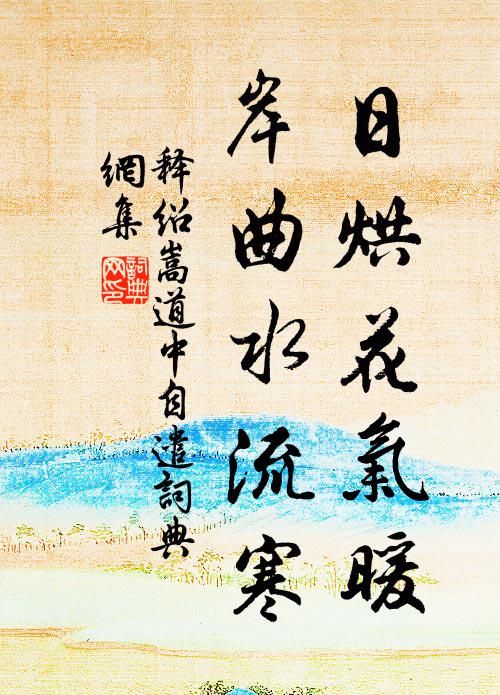 日烘花氣暖
岸曲水流寒
释绍嵩道中自遣詞典
網集
詞典網印